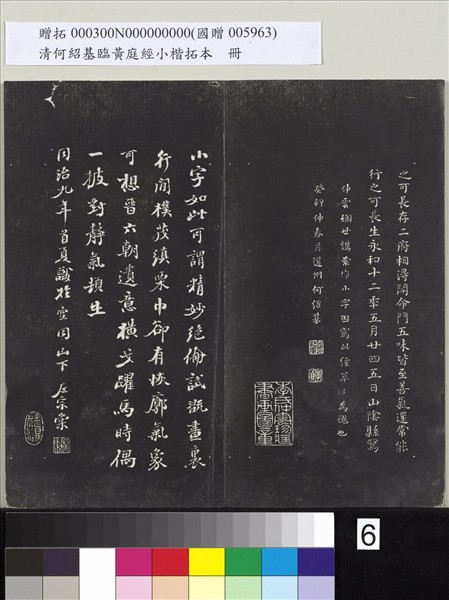 贈拓 000300N000000000(國贈 005963)
清何紹基臨黃庭經小楷拓本 冊
之可長存二府相得開命門五味皆至善氣還常能
行之可長生永和十二年五月廿四五日山陰縣寫
仲雲 世講索作小字因寫此
癸卯仲春月道州何紹基
小字如此可謂精妙絕倫試觀畫裏
行間樸茂縝栗中卻有恢廓氣象
可想晉六朝遺意橫戈躍馬時偶
一披對靜氣頓生
同治九年首夏識於空同山下左宗棠
6